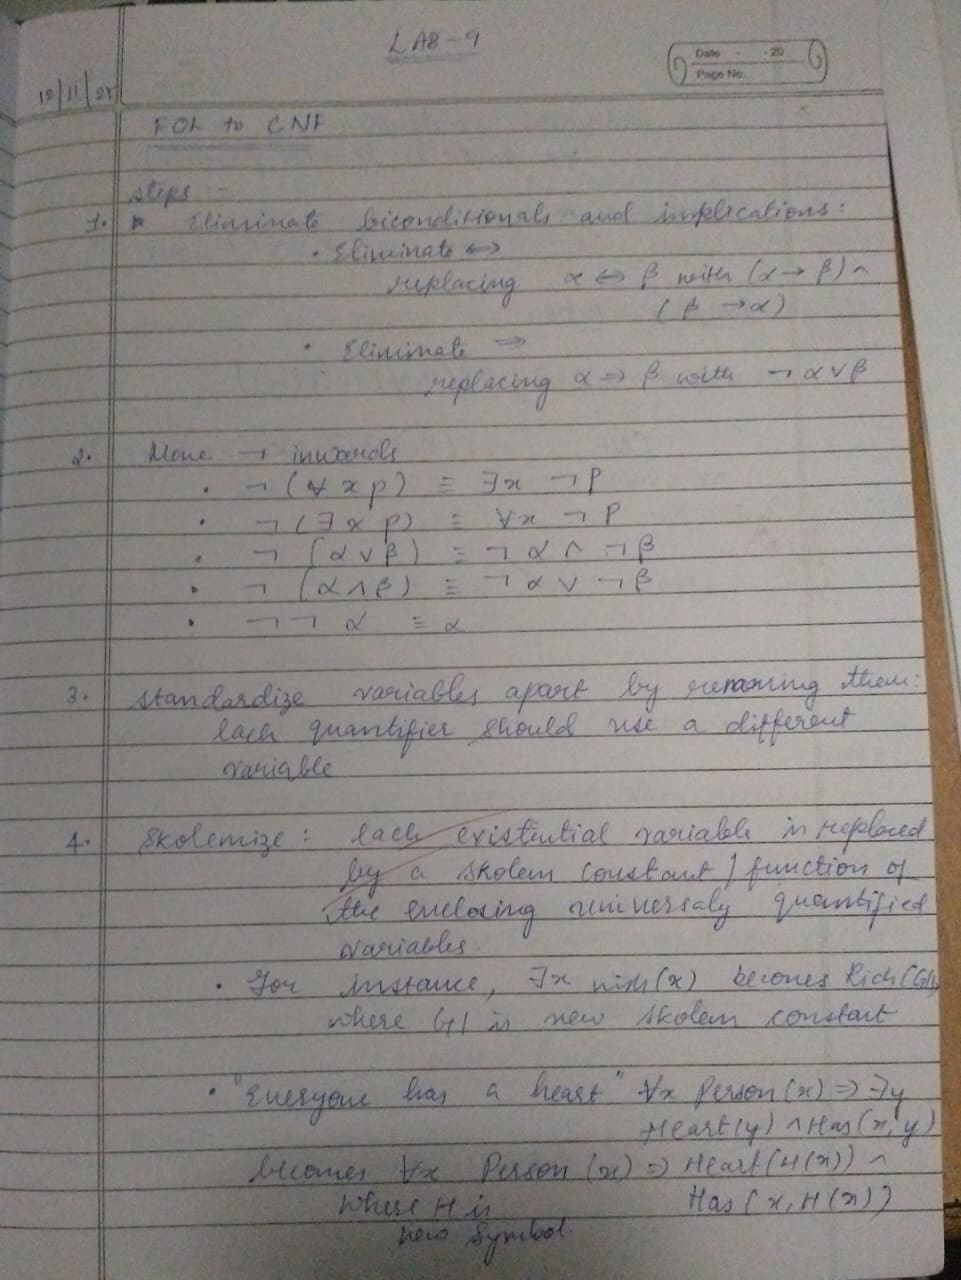 LAB-9
Date - -20
Page No.
12/11/25
FOL to CNF
Steps -
1. Eliminate biconditionals and implications:
• Eliminate ⇔
replacing α ⇔ β with (α → β) ∧
(β → α)
• Eliminate ⇒
replacing α ⇒ β with ¬ α ∨ β
2. Move ¬ inwards
• ¬ (∀ x p) ≡ ∃x ¬ p
• ¬ (∃ x p) ≡ ∀x ¬ P
• ¬ (α ∨ β) ≡ ¬ α ∧ ¬ β
• ¬ (α ∧ β) ≡ ¬ α ∨ ¬ β
• ¬ ¬ α ≡ α
3. Standardize variables apart by renaming them:
each quantifier should use a different
variable
4. Skolemize: each existential variable is replaced
by a skolem constant / function of
the enclosing universaly quantified
variables.
• For instance, ∃x rich(x) becomes Rich(G1)
where G1 is new skolem constant
• "Everyone has a heart" ∀x Person(x) ⇒ ∃y
Heart(y) ∧ Has(x, y)
becomes ∀x Person (x) ⇒ Heart(H(x)) ∧
where H is Has(x, H(x))
new symbol.